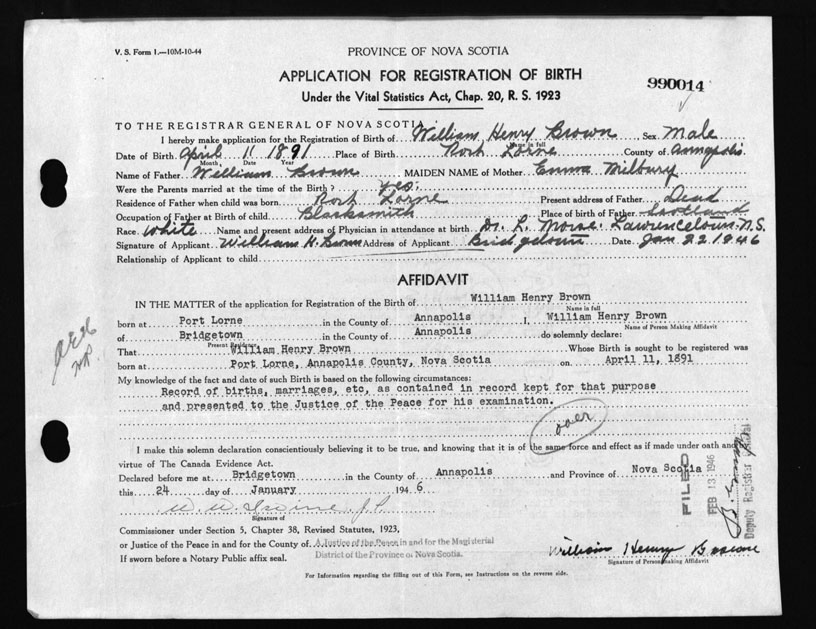 V. S. Form 1.—10M-10-44
PROVINCE OF NOVA SCOTIA
APPLICATION FOR REGISTRATION OF BIRTH
990014
Under the Vital Statistics Act, Chap. 20, R. S. 1923
TO THE REGISTRAR GENERAL OF NOVA SCOTIA
I hereby make application for the Registration of Birth of William Henry Brown Sex Male
Name in full
Date of Birth April 11 1891 Place of Birth Port Lorne County of Annapolis
Month Date Year
Name of Father William Brown MAIDEN NAME of Mother Emma Milbury
Were the Parents married at the time of the Birth? yes.
Residence of Father when child was born Port Lorne Present address of Father Dead
Occupation of Father at Birth of child Blacksmith Place of birth of Father Scotland
Race White Name and present address of Physician in attendance at birth Dr. L. Morse. Lawrencetown. N.S.
Signature of Applicant William H. Brown Address of Applicant Bridgetown Date Jan 22 1946
Relationship of Applicant to child
AFFIDAVIT
IN THE MATTER of the application for Registration of the Birth of William Henry Brown
Name in full
born at Port Lorne in the County of Annapolis I, William Henry Brown
Name of Person Making Affidavit
of Bridgetown in the County of Annapolis do solemnly declare:
Present Residence
That William Henry Brown Whose Birth is sought to be registered was
born at Port Lorne, Annapolis County, Nova Scotia on April 11, 1891
My knowledge of the fact and date of such Birth is based on the following circumstances:
Record of births, marriages, etc, as contained in record kept for that purpose
and presented to the Justice of the Peace for his examination.
over
I make this solemn declaration conscientiously believing it to be true, and knowing that it is of the same force and effect as if made under oath and
virtue of The Canada Evidence Act.
Declared before me at Bridgetown in the County of Annapolis and Province of Nova Scotia
this 24 day of January 1946
Signature of
Commissioner under Section 5, Chapter 38, Revised Statutes, 1923,
or Justice of the Peace in and for the County of A Justice of the Peace in and for the Magisterial
District of the Province of Nova Scotia.
If sworn before a Notary Public affix seal.
William Henry Brown
Signature of Person making Affidavit
For Information regarding the filling out of this Form, see Instructions on the reverse side.
FILED
FEB 13 1946
Deputy Registrar